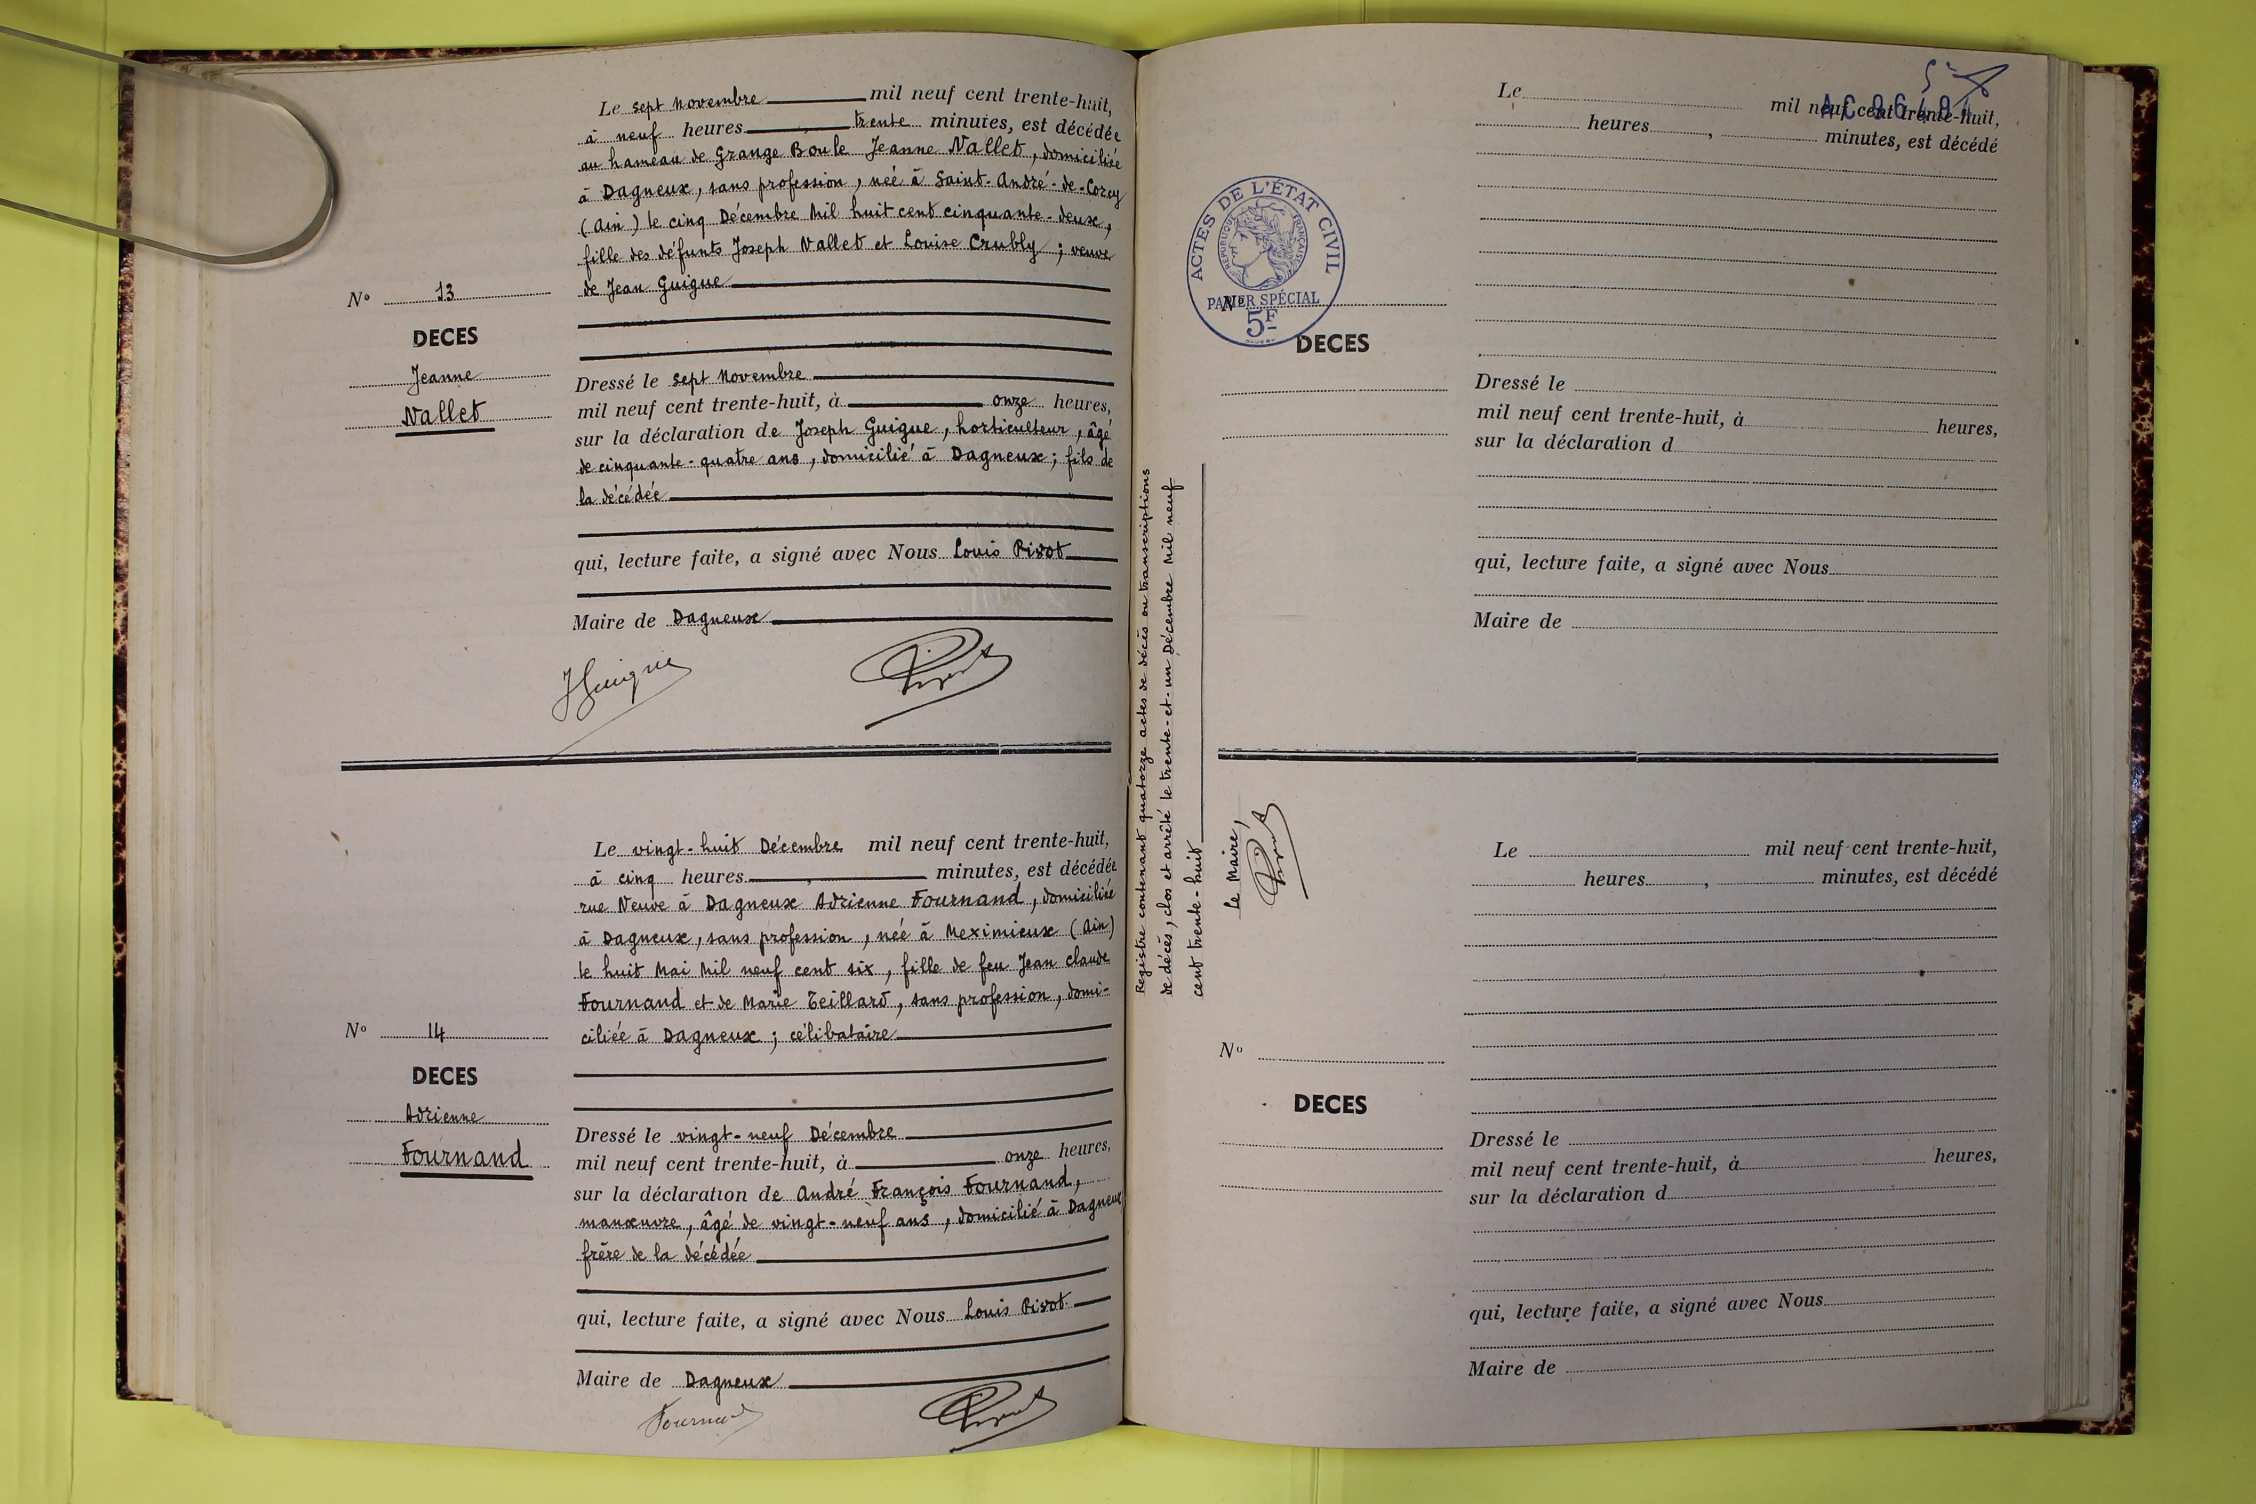 Le sept Novembre mil neuf cent trente-huit,
à neuf heures , trente minutes, est décédée
au hameau de Grange Boule Jeanne Vallet, domiciliée
à Dagneux, sans profession, née à Saint-André-de-Corcy
(Ain) le cinq Décembre Mil huit cent cinquante-deux,
fille des défunts Joseph Vallet et Louise Crubly ; veuve
de Jean Guigue
Nº 13
DECES
Jeanne
Vallet
Dressé le sept Novembre
mil neuf cent trente-huit, à onze heures,
sur la déclaration de Joseph Guigue, horticulteur, âgé
de cinquante-quatre ans, domicilié à Dagneux ; fils de
la décédée
qui, lecture faite, a signé avec Nous Louis Pivot
Maire de Dagneux
JGuigue
Pivot
Le vingt-huit Décembre mil neuf cent trente-huit,
à cinq heures , minutes, est décédée
rue Neuve à Dagneux Adrienne Fournand, domiciliée
à Dagneux, sans profession, née à Meximieux (Ain)
le huit Mai Mil neuf cent six, fille de feu Jean Claude
Fournand et de Marie Teillard, sans profession, domi-
ciliée à Dagneux ; célibataire
Nº 14
DECES
Adrienne
Fournand
Dressé le vingt-neuf Décembre
mil neuf cent trente-huit, à onze heures,
sur la déclaration de André François Fournand,
manœuvre, âgé de vingt-neuf ans, domicilié à Dagneux
frère de la décédée
qui, lecture faite, a signé avec Nous Louis Pivot
Maire de Dagneux
Fournand
Pivot
Registre contenant quatorze actes de décès ou transcriptions
de décès, clos et arrêté le trente-et-un Décembre Mil neuf
cent trente-huit
Le Maire,
Pivot
ACTES DE L'ÉTAT CIVIL
RÉPUBLIQUE FRANÇAISE
PAPIER SPÉCIAL
5F
Le mil neuf cent trente-huit,
heures , minutes, est décédé
Nº
DECES
Dressé le
mil neuf cent trente-huit, à heures,
sur la déclaration d
qui, lecture faite, a signé avec Nous
Maire de
Le mil neuf cent trente-huit,
heures , minutes, est décédé
Nº
DECES
Dressé le
mil neuf cent trente-huit, à heures,
sur la déclaration d
qui, lecture faite, a signé avec Nous
Maire de